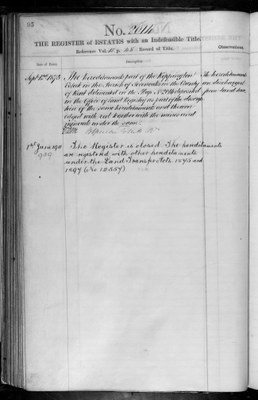 No. 2014
THE REGISTER of ESTATES with an Indefeasible Title.
Reference Vol. p. Record of Title.
Date of Entry.
Description
Observations.
Sept 1873 The hereditaments part of the Kippington
Estate in the Parish of Sevenoaks in the County
of Kent delineated on the Map No 2014 deposited
in the Office of Land Registry as part of the descrip
tion of the same hereditaments and there
edged with red together with the mines and
minerals under the same
The hereditaments
are discharged
from land tax
1st June
1909
The Register is closed. The hereditaments
are registered with other hereditaments
under the Land Transfer Acts 1875 and
1897 (No